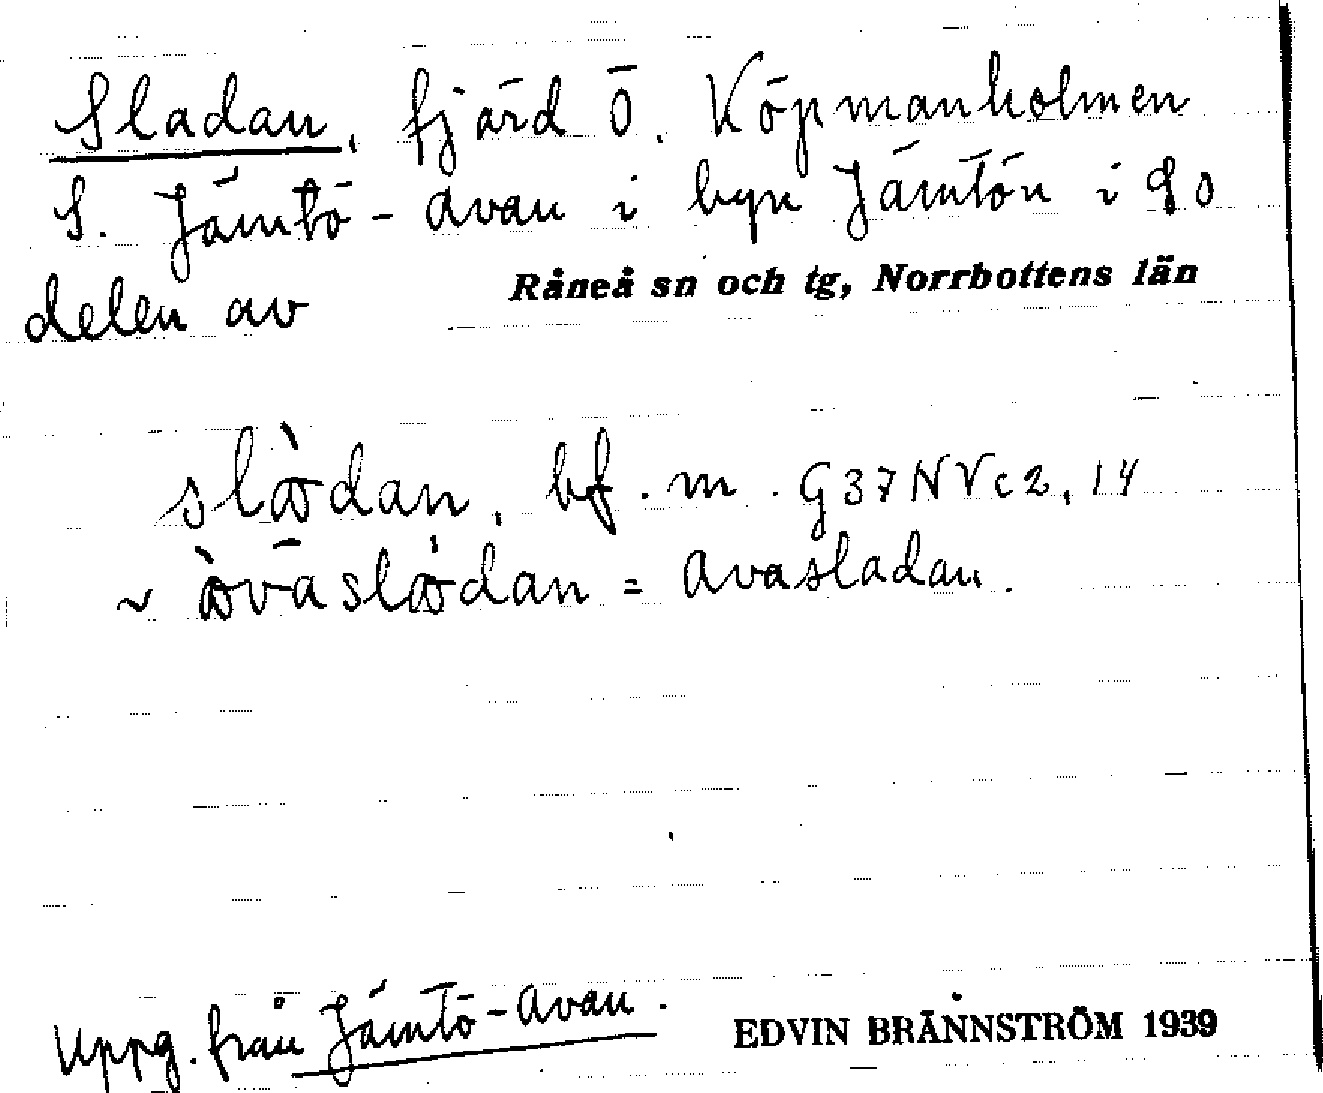 Sladan, fjärd Ö. Köpmanholmen
S. Jämtö-avan i byn Jämtön i SO
delen av Råneå sn och tg, Norrbottens län
bf. m. G37NVc2, 14
= avasladan.
Uppg. från Jämtö-avan.
EDVIN BRÄNNSTRÖM 1939